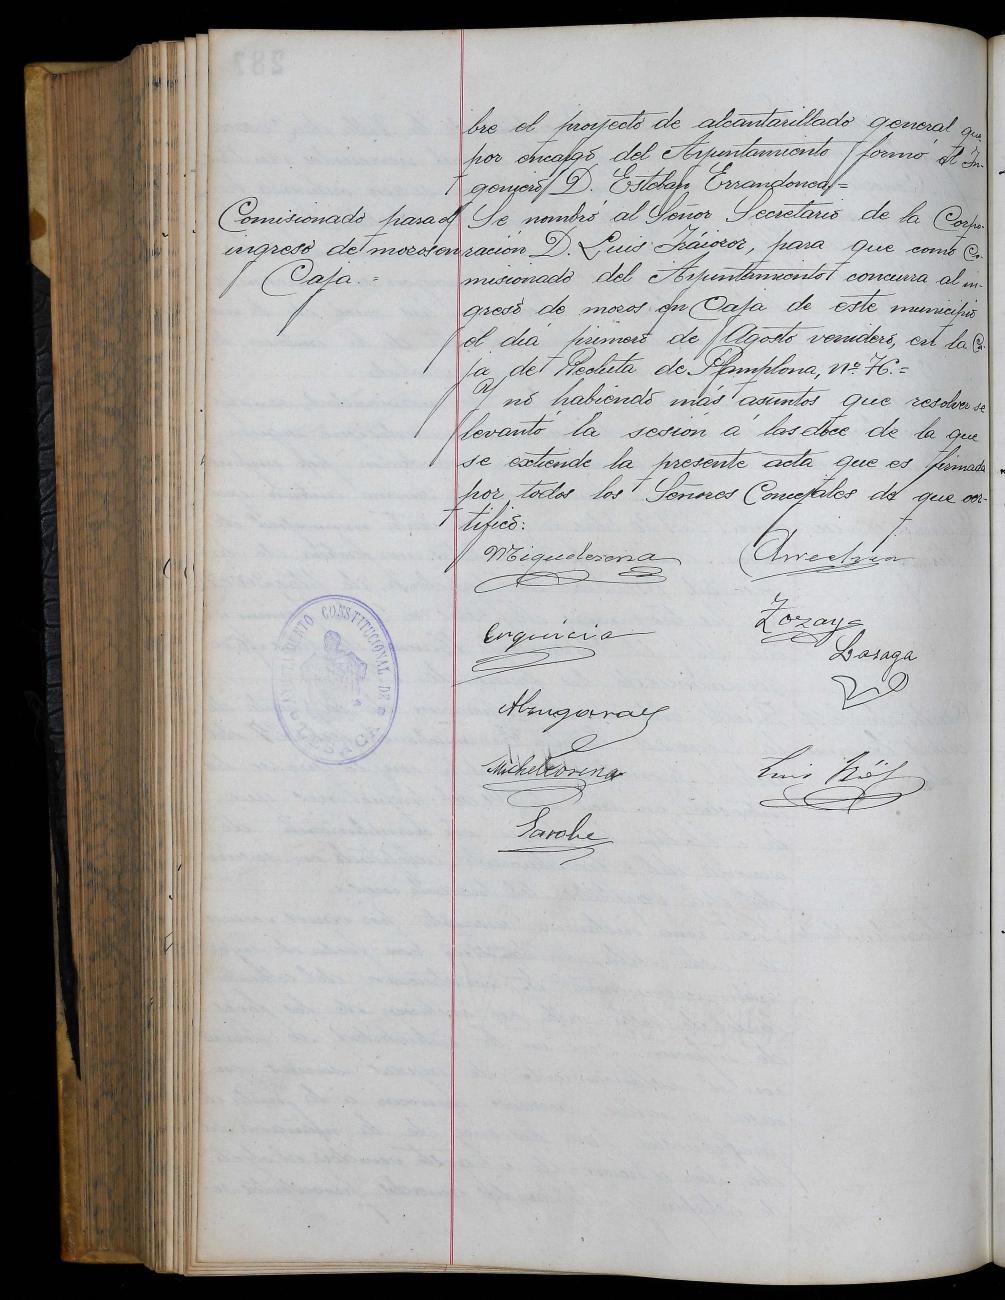 bre el proyecto de alcantarillado general que
por encargo del Ayuntamiento formó el In-
geniero D. Esteban Errandonea.=
Comisionado para el
ingreso de mozos en
Caja.=
Se nombró al Señor Secretario de la Corpo-
ración D. Luis para que como Co-
misionado del Ayuntamiento concurra al in-
greso de mozos en Caja de este municipio
el día primero de Agosto venidero, en la Ca-
ja de Recluta de Pamplona, nº 76.=
Y no habiendo más asuntos que resolver se
levantó la sesión á las doce de la que
se extiende la presente acta que es firmada
por todos los Señores Concejales de que cer-
tifico:
Miguelesena
Arrechea
Zozaya
Erquicia
Lasaga
Alzugaray
Michelcorena
Luis
Sarobe
AYUNTAMIENTO CONSTITUCIONAL DE
LESACA